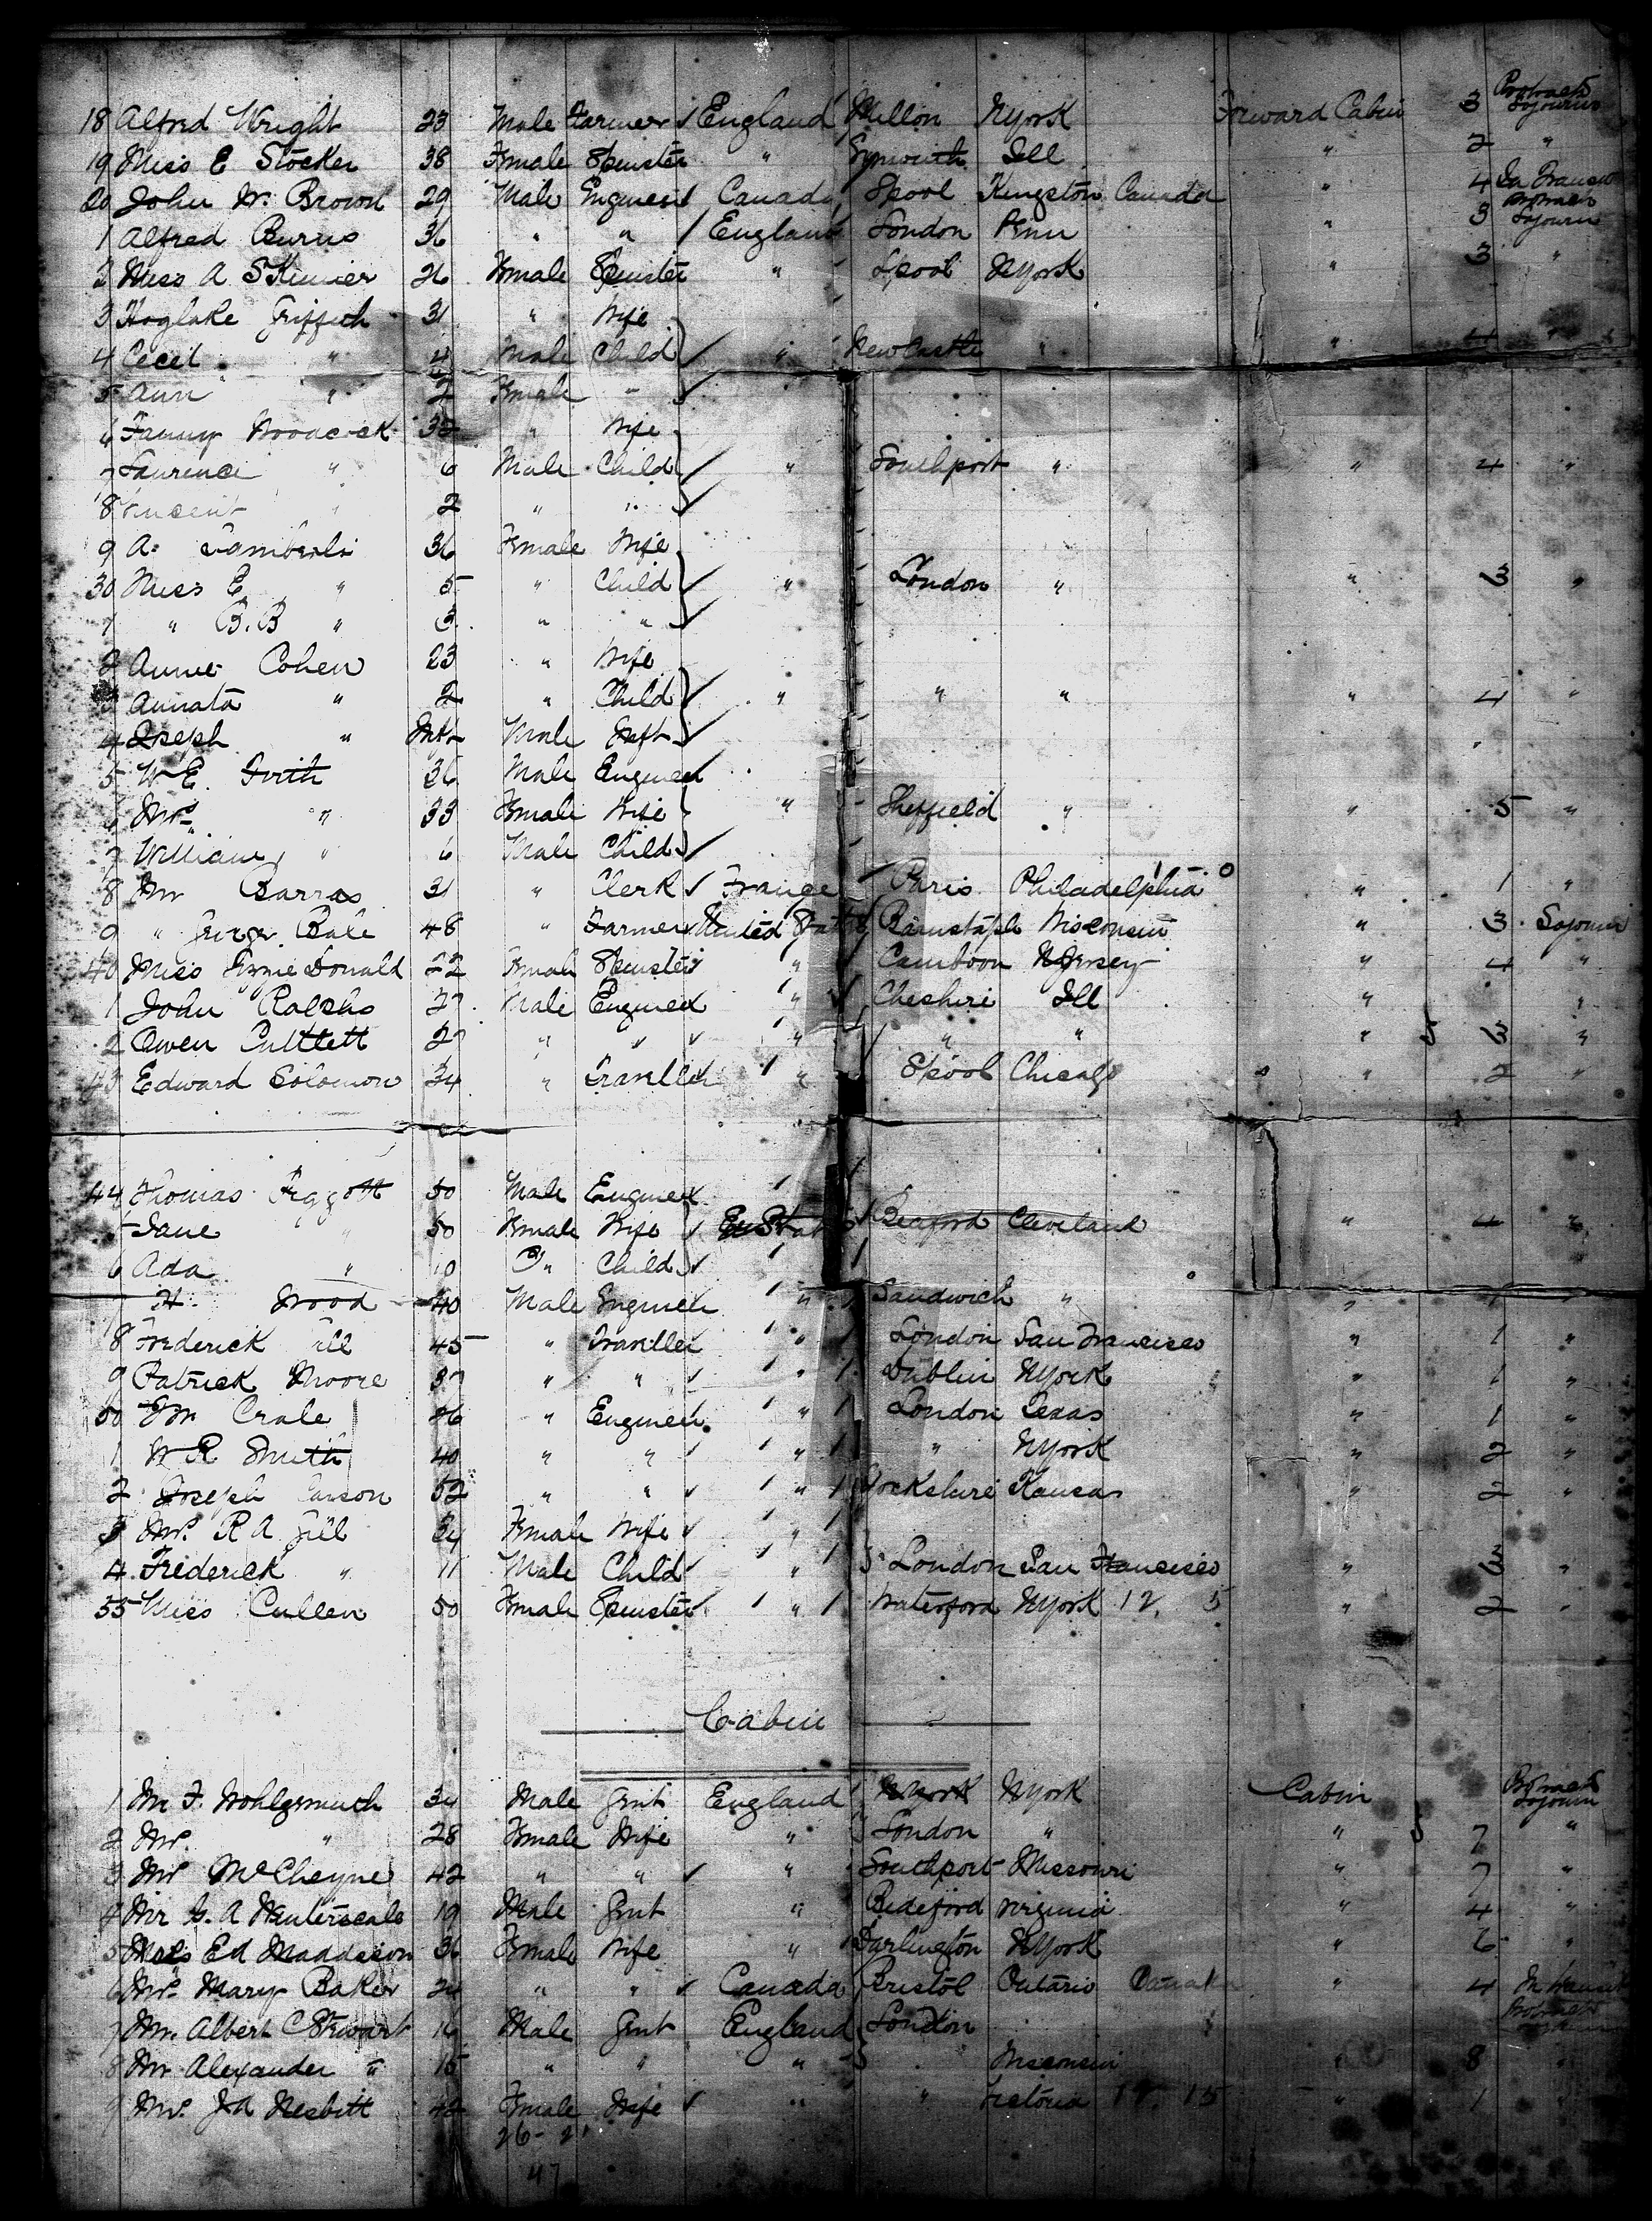 18 Alfred Wright 23 Male Farmer England Millon NYork Forward Cabin 3 Protracted Sojourn
19 Miss E Stocker 38 Female Spinster " Ill " 2 "
20 John W. Brown 29 Male Engineer Canada Lpool Kingston Canada " 4 In Transit
1 Alfred Burns 36 " " England London Penn " 3 Protracted Sojourn
2 Miss A Skinner 26 Female Spinster " Lpool NYork " 3 "
3 Hoglake Griffith 31 " Wife
4 Cecil " 4 Male Child " NewCastle " " 4 "
5 Ann " 2 Female "
6 Fanny Woodcock 32 " Wife
7 Laurence " 6 Male Child " Southport " " 4 "
8 Vincent " 2 " "
9 A. 36 Female Wife
30 Miss E " 5 " Child " London " " 3 "
1 " B.B " 3 " "
2 Annie Cohen 23 " Wife
3 Annata " 2 " Child " " " " 4 "
4 Joseph " Inft Male Inft
5 W E. Firth 36 Male Engineer
6 Mrs " 33 Female Wife " Sheffield " " 5 "
7 William " 6 Male Child
8 Mr Barras 31 " Clerk France Paris Philadelphia " 1 "
9 " Bale 48 " Farmer United States Barnstaple Wisconsin " 3 Sojourn
40 Miss Lizzie Donald 22 Female Spinster " NJersey " 4 "
1 John 27 Male Engineer " Cheshire Ill " "
2 Owen 27 " " " " " " 3 "
43 Edward Solomon 34 " Traveller " Lpool Chicago " 2 "
44 Thomas Piggott 50 Male Engineer
5 Jane " 50 Female Wife Cleveland " 4 "
6 Ada " 10 " Child
H. Wood 40 Male Engineer " Sandwich " " 1 "
8 Frederick 45 " Traveller " London San Francisco " 1 "
9 Patrick Moore 37 " " " Dublin NYork " 1 "
50 Crale " Engineer " London Texas " 1 "
1 W R Smith 40 " " " " NYork " 2 "
2 Joseph 52 " " " Yorkshire Kansas " 2 "
3 Mrs. R A Gill 34 Female Wife "
4 Frederick " 11 Male Child " London San Francisco " 3 "
55 Miss Cullen 50 Female Spinster " Waterford NYork 12. 5 " 2 "
Cabin
1 Mr F. Wohlgemuth 34 Male Gent England NYork NYork Cabin Protracted Sojourn
2 Mrs. " 28 Female Wife " London " " 7 "
3 Mrs McCheyne 42 " " " Southport Missouri " 7 "
4 Mr G. A 19 Male Gent " Bideford Virginia " 4 "
5 Ed Maddison 36 Female Wife " Darlington NYork " 6 "
6 Mrs. Mary Baker 24 " " Canada Bristol Ontario Canada " 4 In Transit
7 Mr. Albert C Stewart 16 Male Gent England London Protracted
8 Mr Alexander " 15 " " " Wisconsin " 8 "
9 Mrs. J A Nesbitt 42 Female Wife " " " 1 "
26 - 21
47